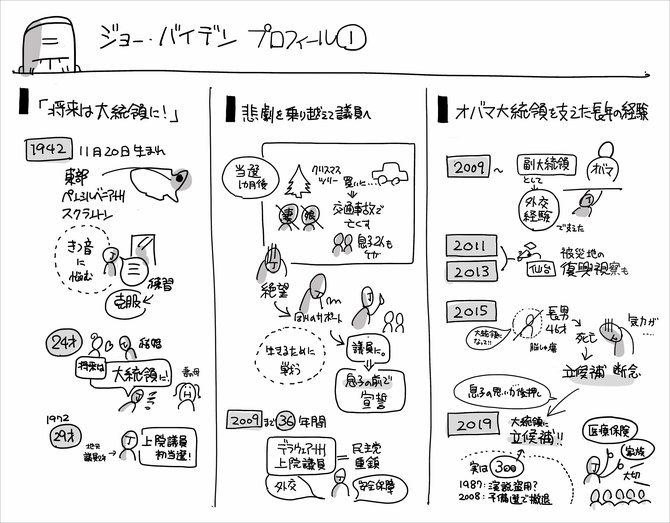 ジョー・バイデン プロフィール①
「将来は大統領に!」
1942 11月20日生まれ
東部
ペンシルベニア州
スクラントン
きつ音
に
悩む
練習
克服
24才
結婚
将来は
大統領に!
義母
1972
29才
地元
議員を
上院議員
初当選!
悲劇を乗り越えて議員へ
当選
1カ月後
クリスマス
ツリー
買いに…
妻
娘
交通事故で
亡くす
息子2人も
ケガ
絶望
周りのサポート
生きるために
戦う
議員に。
息子の前で
宣誓
2009まで 36年間
デラウェア州
上院議員
民主党
重鎮
外交
安全保障
オバマ大統領を支えた長年の経験
2009〜
副大統領
として
オバマ
外交
経験
で支えた
2011
2013
仙台
被災地の
復興視察も
2015
大統領に
なって!!
長男
46才
脳しゅ瘍
死亡
気力が…
立候補 断念
息子の思いが後押し
2019
大統領に
立候補!!
実は 3回目
1987:演説盗用?
2008:予備選で撤退
医療保険
家族
大切